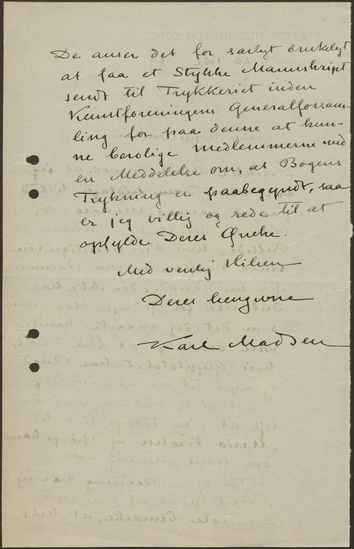 De anser det for særligt ønskeligt
at faa et Stykke Manuskript
sendt til Trykkeriet inden
Kunstforeningens Generalforsam-
ling for paa denne at kun-
ne berolige Medlemmerne med
en Meddelelse om, at Bogens
Trykning er paabegyndt, saa
er jeg villig og rede til at
opfylde Deres Ønske.
Med venlig Hilsen
Deres hengivne
Karl Madsen